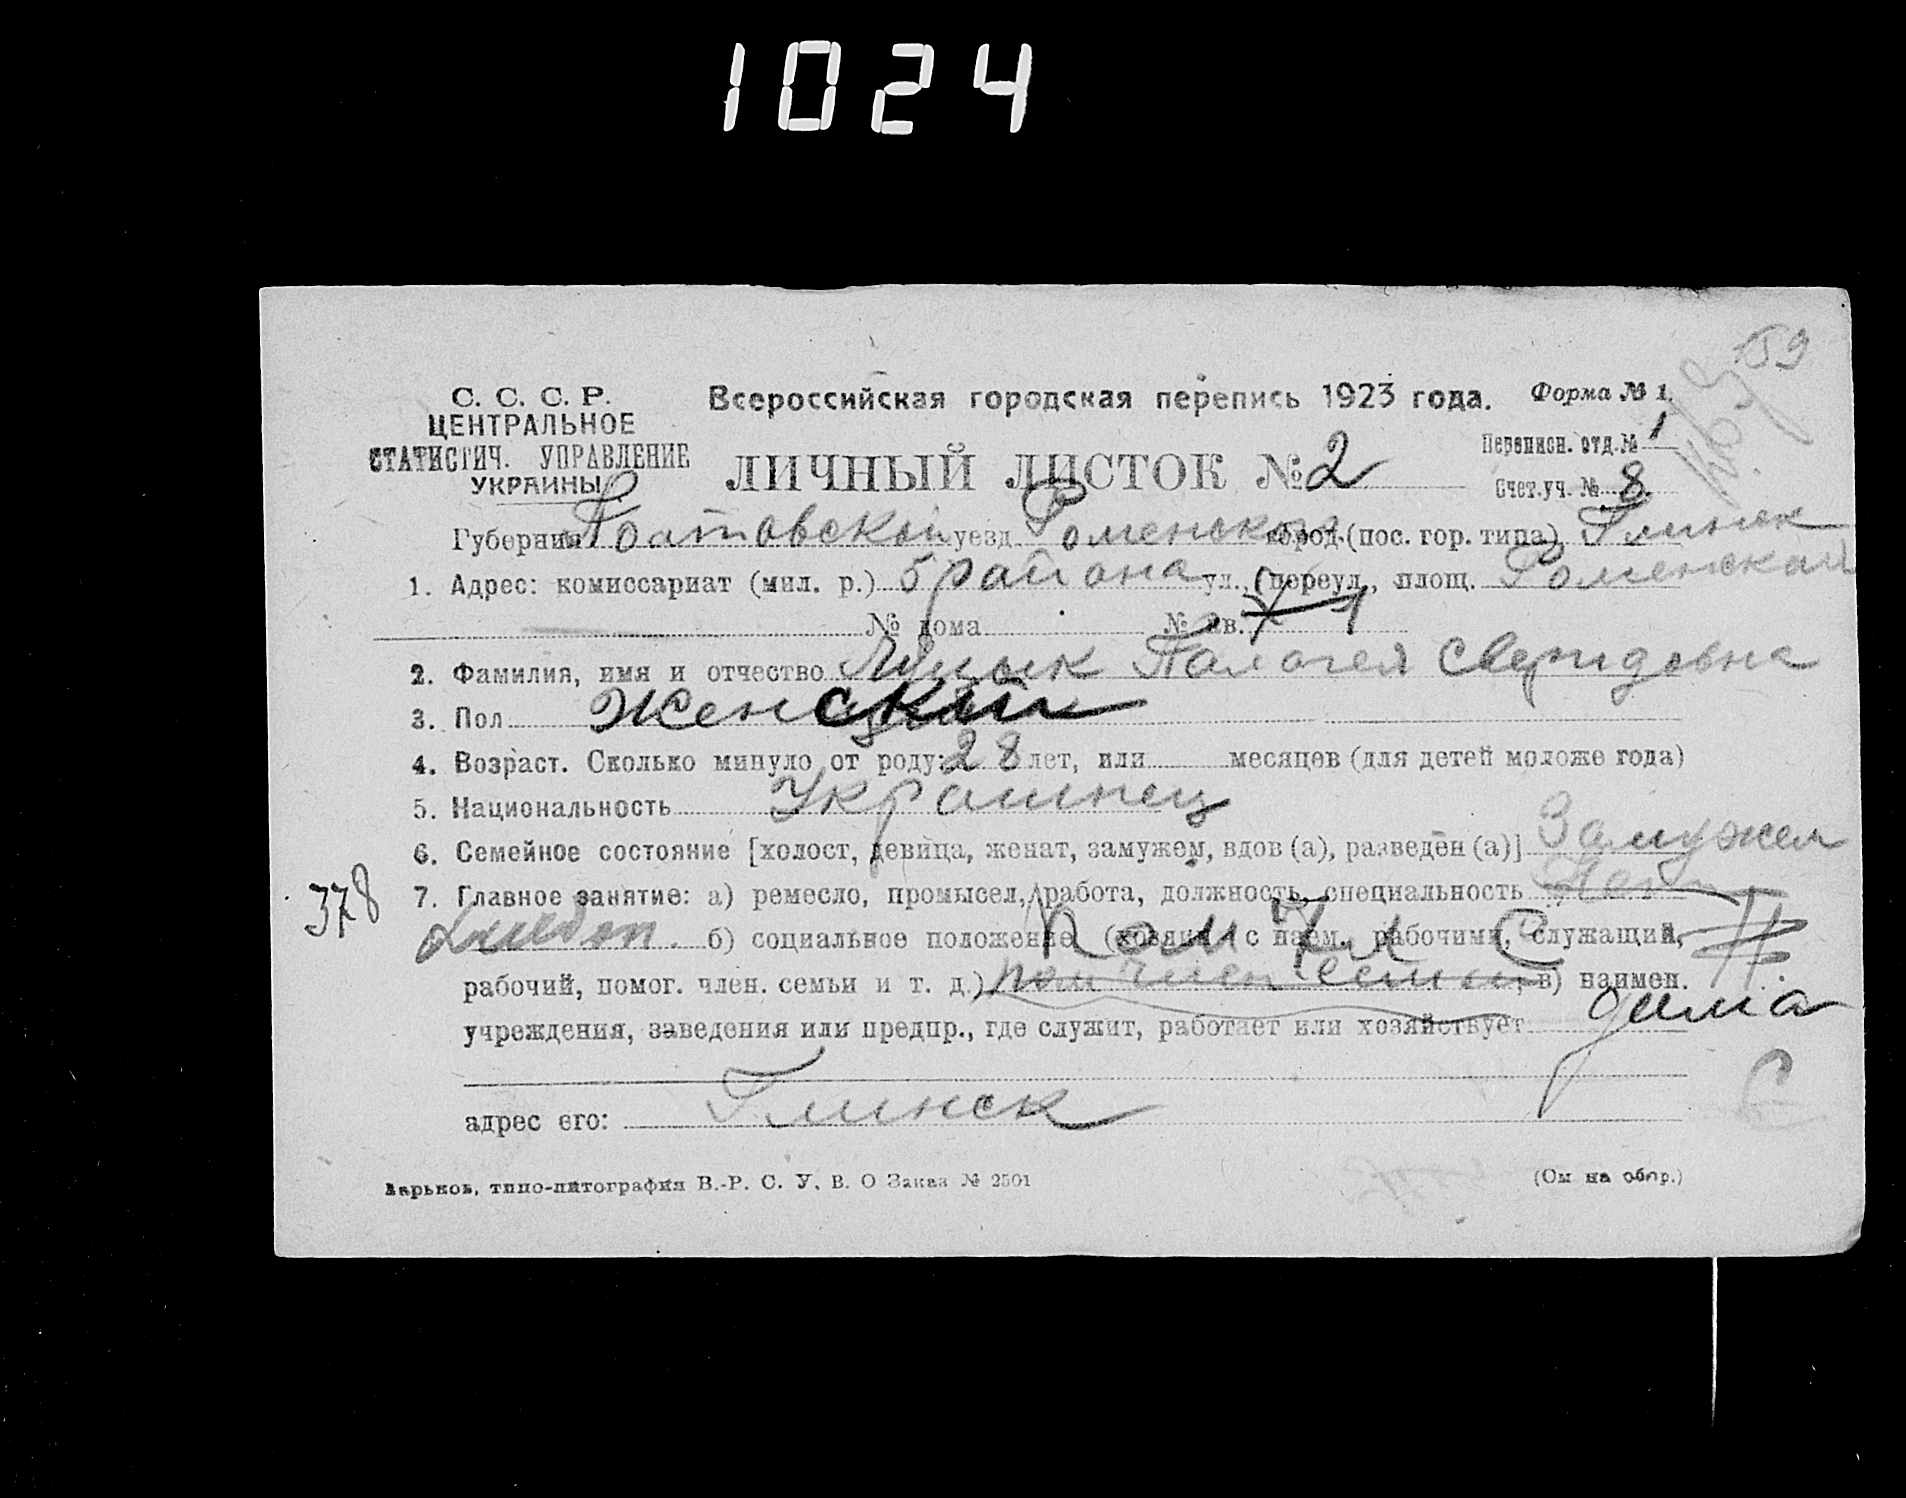 1024
159
С. С. С. Р.
ЦЕНТРАЛЬНОЕ
СТАТИСТИЧ. УПРАВЛЕНИЕ
УКРАИНЫ
Всероссийская городская перепись 1923 года.
Форма № 1.
ЛИЧНЫЙ ЛИСТОК № 2
Переписн. отд. № 1
Счет. уч. № 8.
Губерния Полтовской уезд Роменской город (пос. гор. типа) Глинск
1. Адрес: комиссариат (мил. р.) 5 района ул., (переул., площ. Роменская
№ дома № кв. 1
2. Фамилия, имя и отчество Палогея Сверидовна
3. Пол Женский
4. Возраст. Сколько минуло от роду: 28 лет, или месяцев (для детей моложе года)
5. Национальность Украинец
6. Семейное состояние [холост, девица, женат, замужем, вдов (а), разведен (а)] Замужем
378
7. Главное занятие: а) ремесло, промысел, работа, должность, специальность
б) социальное положение (хозяин с наем. рабочими, служащий,
рабочий, помог. член. семьи и т. д.) пом член семьи, в) наимен.
учреждения, заведения или предпр., где служит, работает или хозяйствует дома
адрес его: Глинск
Харьков, типо-литография В.-Р. С. У. В. О Заказ № 2501
(См на обор.)